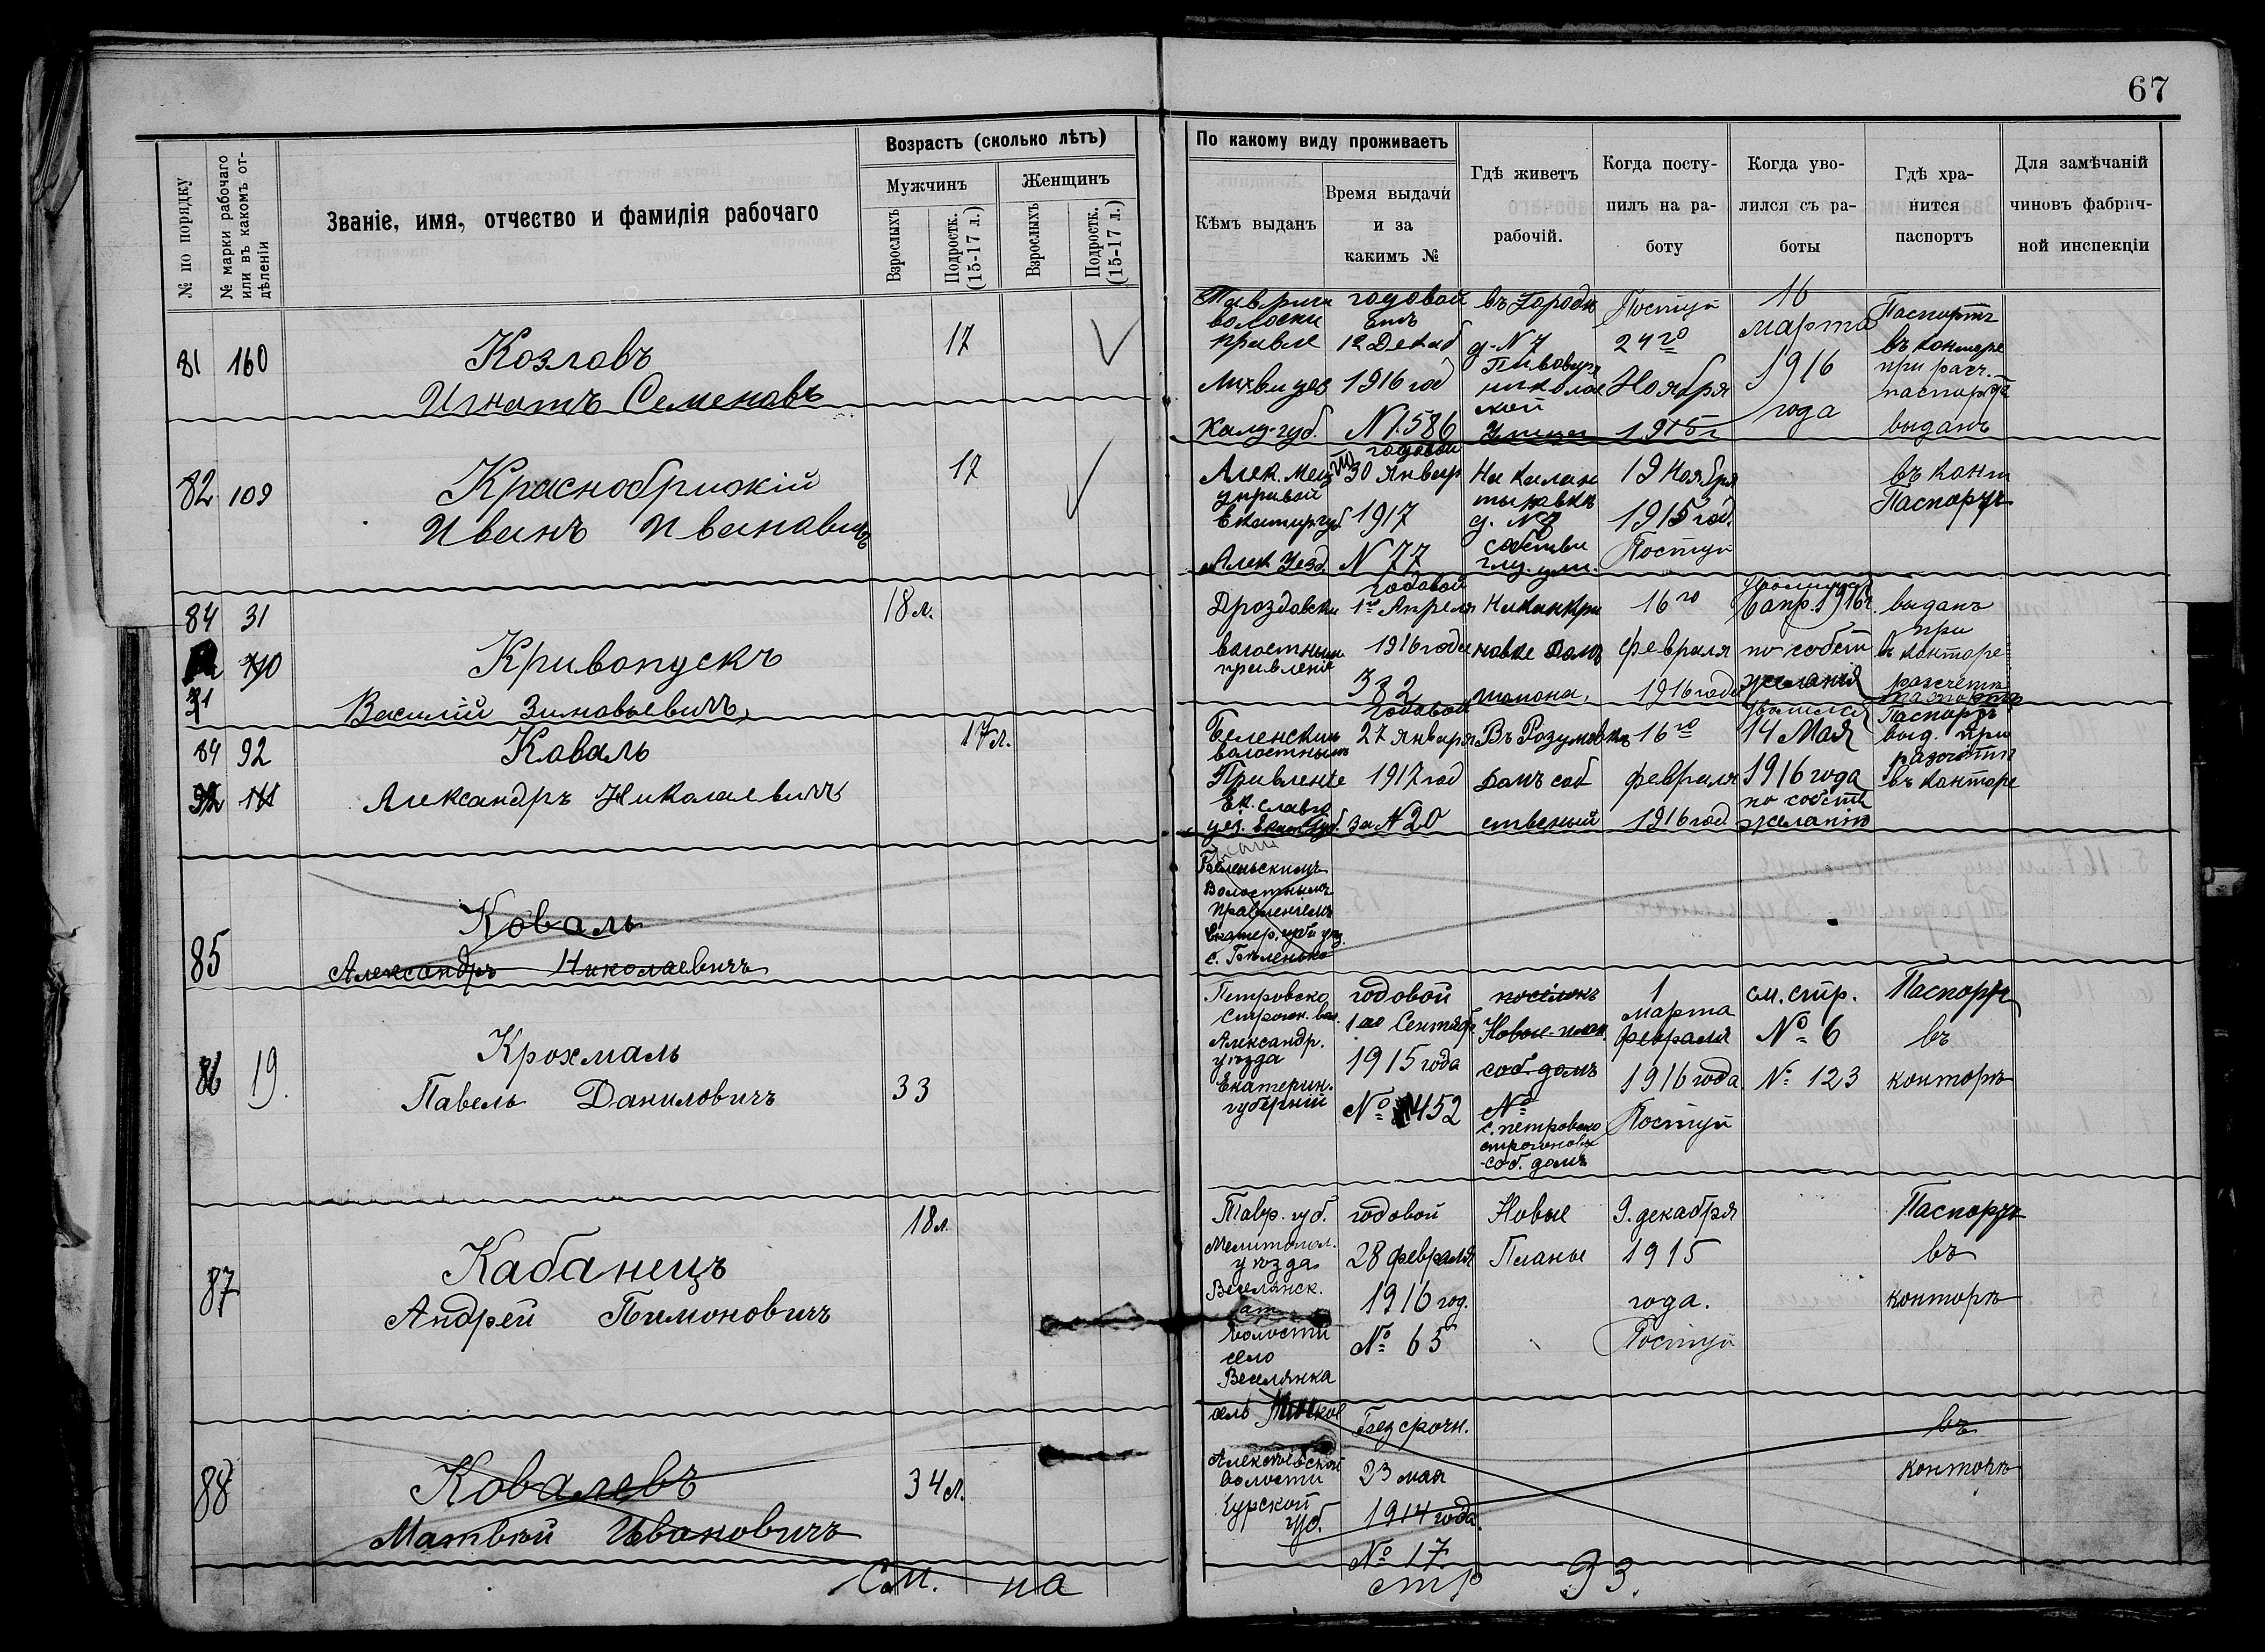 67
№ по порядку
№ марки рабочаго или въ какомъ отдѣленіи
Званіе, имя, отчество и фамилія рабочаго
Возрастъ (сколько лѣтъ)
Мужчинъ
Женщинъ
Взрослыхъ
Подростк. (15-17 л.)
Взрослыхъ
Подростк. (15-17 л.)
По какому виду проживаетъ
Кѣмъ выданъ
Время выдачи
и за
какимъ №
Гдѣ живетъ
рабочій.
Когда посту-
пилъ на ра-
боту
Когда уво-
лился съ ра-
боты
Гдѣ хра-
нится
паспортъ
Для замѣчаній
чиновъ фабрич-
ной инспекціи
81 160
Козловъ
Игнатъ Семеновъ
17
Калу. губ.
годовой
12 Декаб
1916 год
N 1586
въ Городк
д. N 7
Поступ
24 го
Ноября
1915 г
16
марта
1916
года
Паспортъ
въ конторе
при расч.
выданъ
82 109
Краснобрижій
Иванъ Ивановичъ
17
Алек. Мещ
управой
Екатир губ
Алек. Уезд.
годовой
30 Январ
1917
N 77
д. N 8
19 Ноября
1915 год.
Поступ
въ конт
Паспортъ
84 31
Кривопускъ
Василій Зиновьевичъ
18 л.
Дроздовски
волостным
правленіе
годовой
1го Апреля
1916 года
382
16 го
февраля
1916 года
6 апр. 1916 г.
по собст
желанія
выданъ
при
в конторе
84 92
Коваль
Александръ Николаевичъ
17 л.
Беленским
волостнымъ
Правленіе
годовой
27 января
1917 год
за N 20
Въ Розумовкъ
домъ соб
ственый
16 го
февраля
1916 год
14 Мая
1916 года
по собств
желанію
Паспортъ
выд. при
в конторе
85
Коваль
Александръ Николаевичъ
Бѣленьскимъ
Волостнымъ
Правленіемъ
с. Бѣленько
86 19.
Крохмаль
Павелъ Даниловичъ
33
Петровско
Александр.
уѣзда
Екатерин.
губерній
годовой
1го Сентябр.
1915 года
№ 452
посёлокъ
Новое-план.
соб. домъ
№
с. петровско
соб. домъ
1
марта
февраля
1916 года
Поступ
см. стр.
№ 6
№ 123
Паспортъ
въ
конторѣ
87
Кабанецъ
Андрей Пимоновичъ
18 л.
Тавр. губ.
Мелитопол.
уѣзда
Веселянск.
волости
село
Веселянка
годовой
28 февраля
1916 год.
№ 65
Новые
Планы
9. декабря
1915
года.
Поступ
Паспортъ
въ
конторѣ
88
Ковалевъ
Матвѣй Ивановичъ
34 л.
Алексѣевской
волости
Курской
губ.
Безсрочн.
23 мая
1914 года.
№ 17
въ
конторѣ
См. на стр 93.